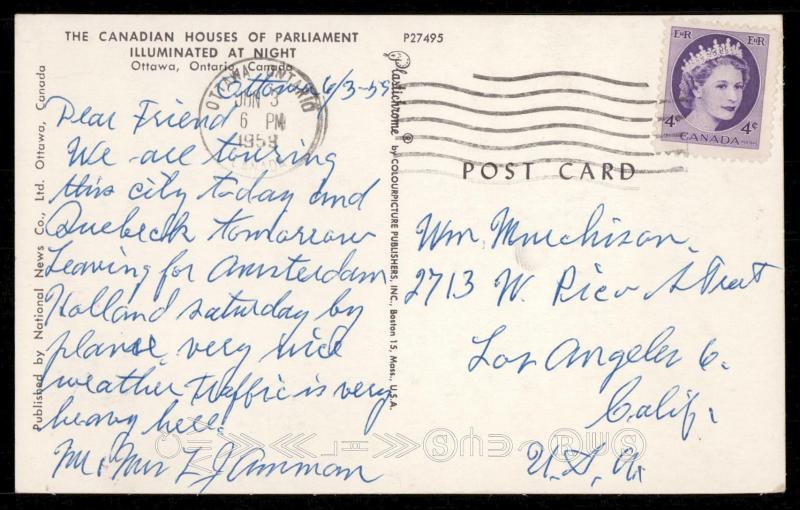 THE CANADIAN HOUSES OF PARLIAMENT
ILLUMINATED AT NIGHT
Ottawa, Ontario, Canada
P27495
Published by National News Co., Ltd. Ottawa, Canada
Plastichrome ® by COLOURPICTURE PUBLISHERS, INC., Boston 15, Mass., U.S.A.
OTTAWA ONTARIO
JUN 3
6 PM
1959
E R E R
4¢ 4¢
CANADA
POST CARD
Ottawa 6/3-59
Dear Friend
We are touring
this city today and
Quebeck tomorrow
Leaving for Amsterdam
Holland saturday by
plane, very nice
weather Traffic is very
heavy here.
Mr & Mrs L J Amman
Wm Murchison.
2713 W. Pico Street
Los Angeles 6.
Calif.
U.S.A.